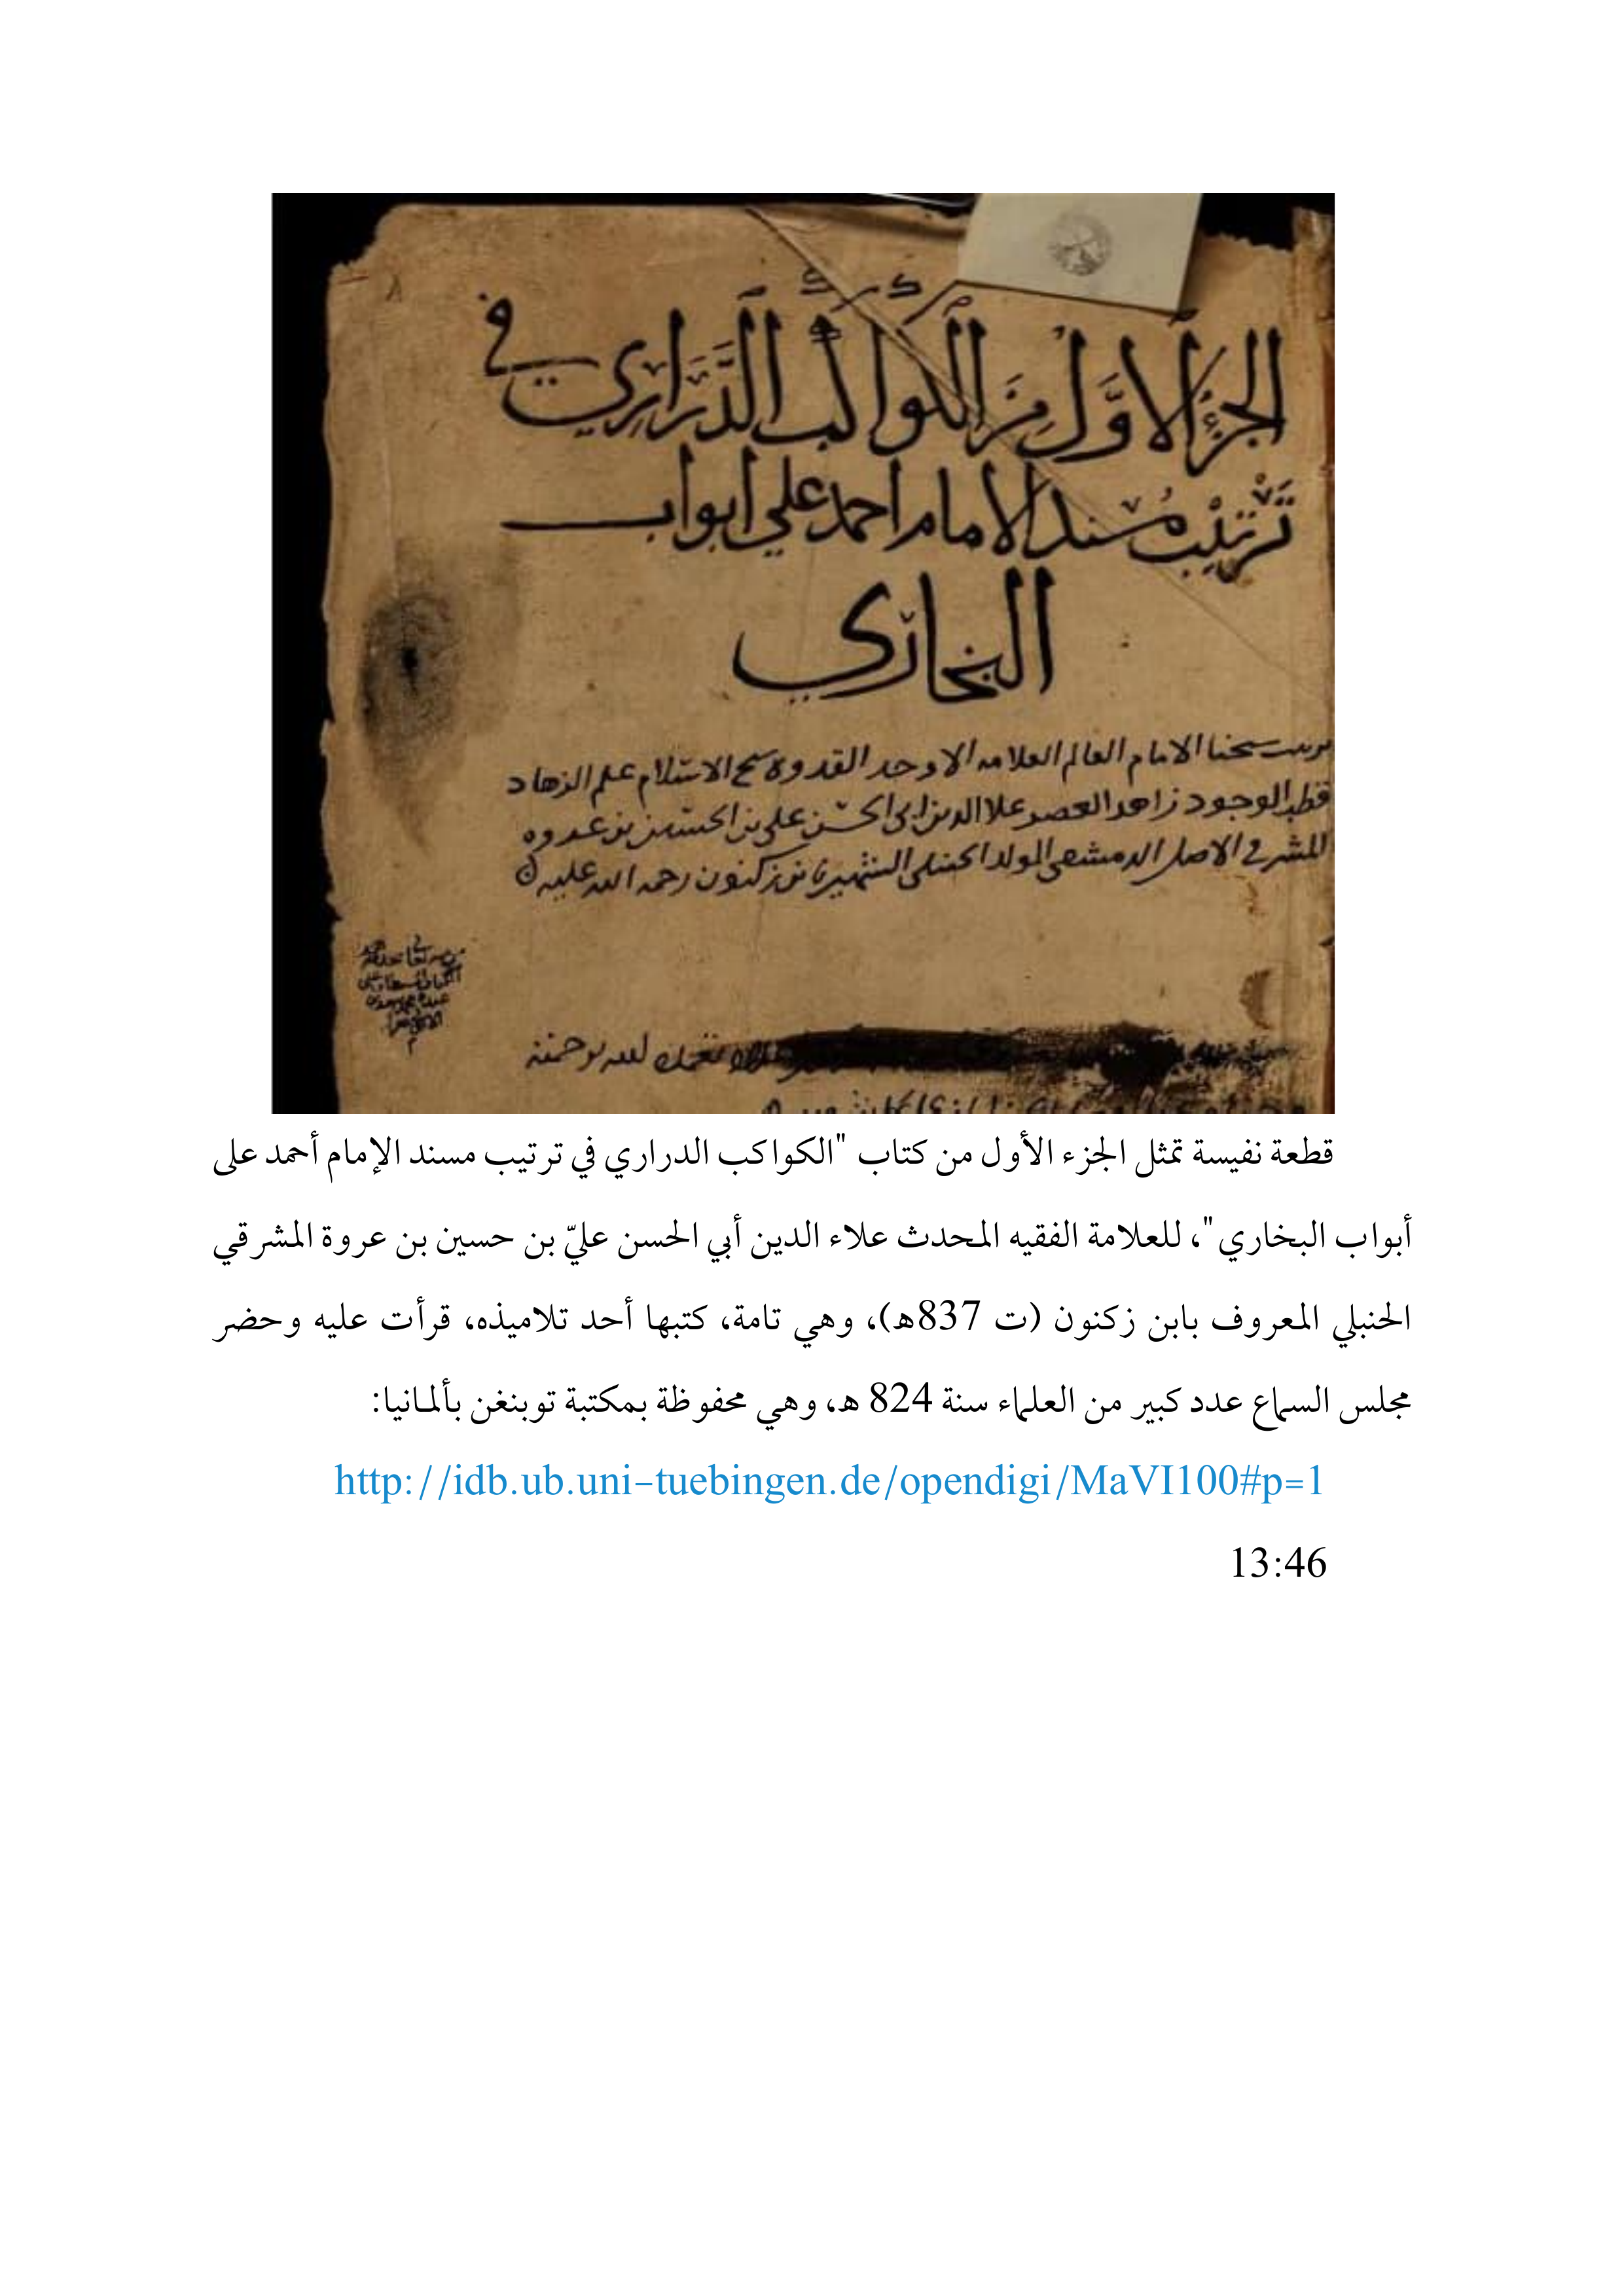 الجزء الاول من الكواكب الدراري في
ترتيب مسند الامام احمد علي ابواب
البخاري
الامام العالم العلامه الاوحد القدوه الاسلام علم الزهاد
قطب الوجود زاهد العصر علا الدين ابي الحسن علي بن الحسين بن عروه
المشرقي الاصل الدمشقي المولد الحنبلي الشهير بابن زكنون رحمه الله عليه
قطعة نفيسة تمثل الجزء الأول من كتاب "الكواكب الدراري في ترتيب مسند الإمام أحمد على
أبواب البخاري"، للعلامة الفقيه المحدث علاء الدين أبي الحسن عليّ بن حسين بن عروة المشرقي
الحنبلي المعروف بابن زكنون (ت 837هـ)، وهي تامة، كتبها أحد تلاميذه، قرأت عليه وحضر
مجلس السماع عدد كبير من العلماء سنة 824 هـ، وهي محفوظة بمكتبة توبنغن بألمانيا:
http://idb.ub.uni-tuebingen.de/opendigi/MaVI100#p=1
13:46